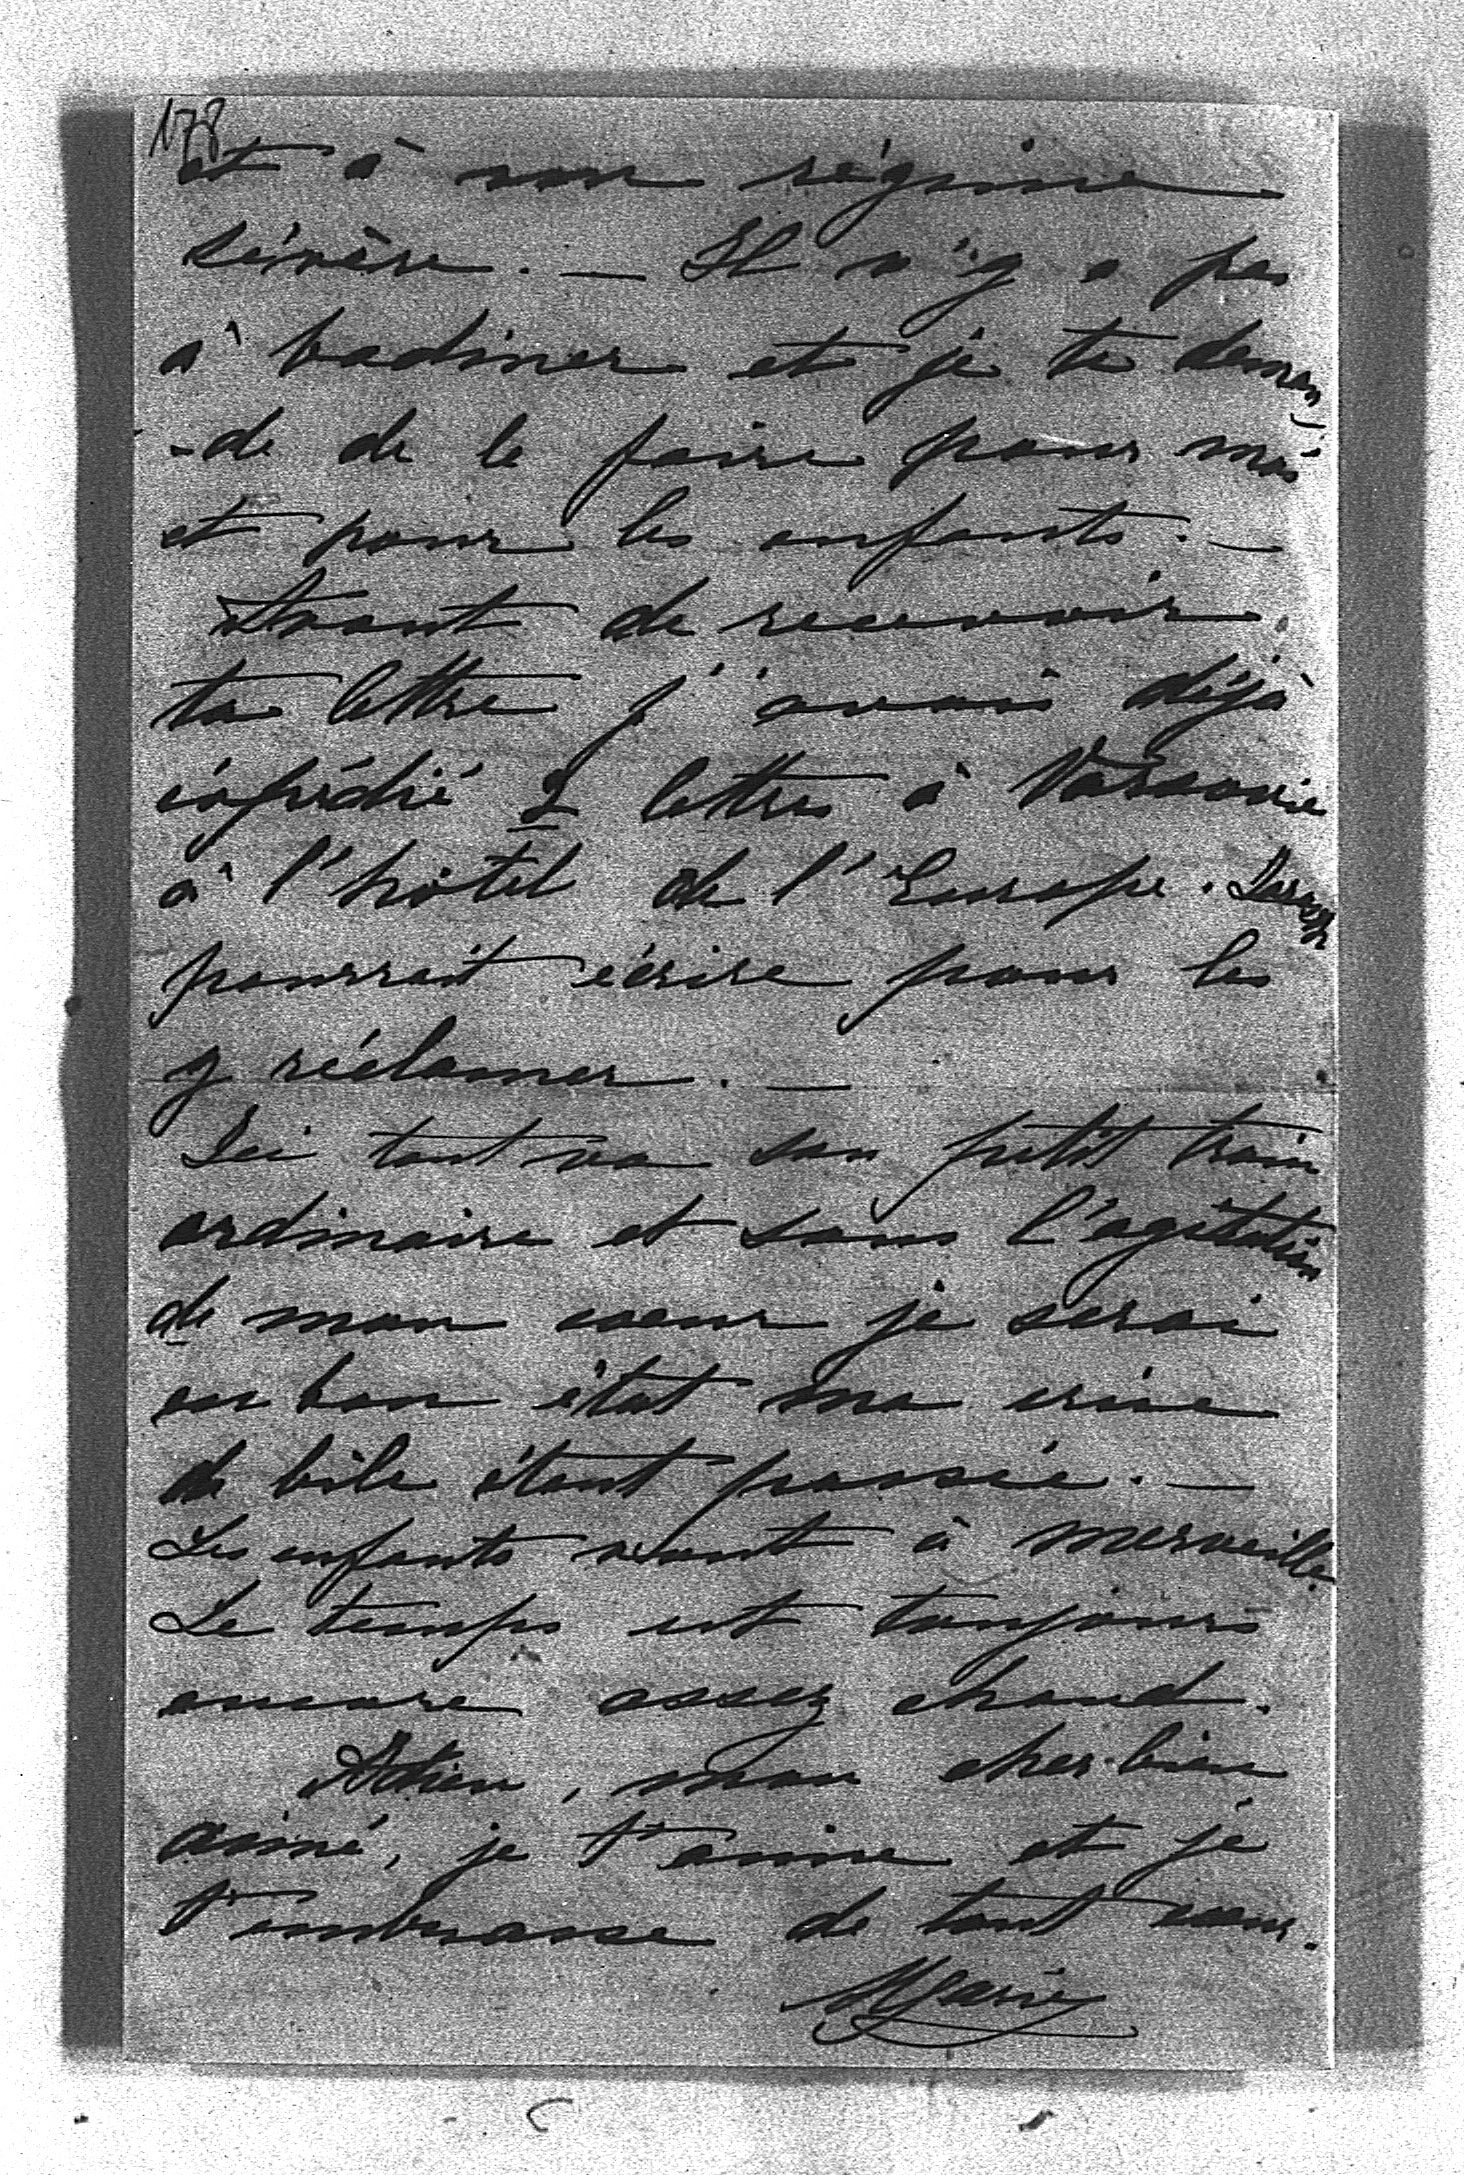 178
et à un régime
sévère. — Il n'y a pas
à badiner et je te deman
-de de le faire pour moi
et pour les enfants. —
Avant de recevoir
ta lettre j'avais déjà
expédié 2 lettres à Varsovie
à l'hôtel de l'Europe.
pourrait écrire pour les
y réclamer. —
Ici tout va son petit train
ordinaire et sans l'agitation
de mon coeur je serai
en bon état ma crise
de bile étant passée. —
Les enfants vont à merveille.
Le temps est toujours
encore assez chaud.
Adieu, mon cher bien
aimé, je t'aime et je
t'embrasse de tout coeur.
Marie